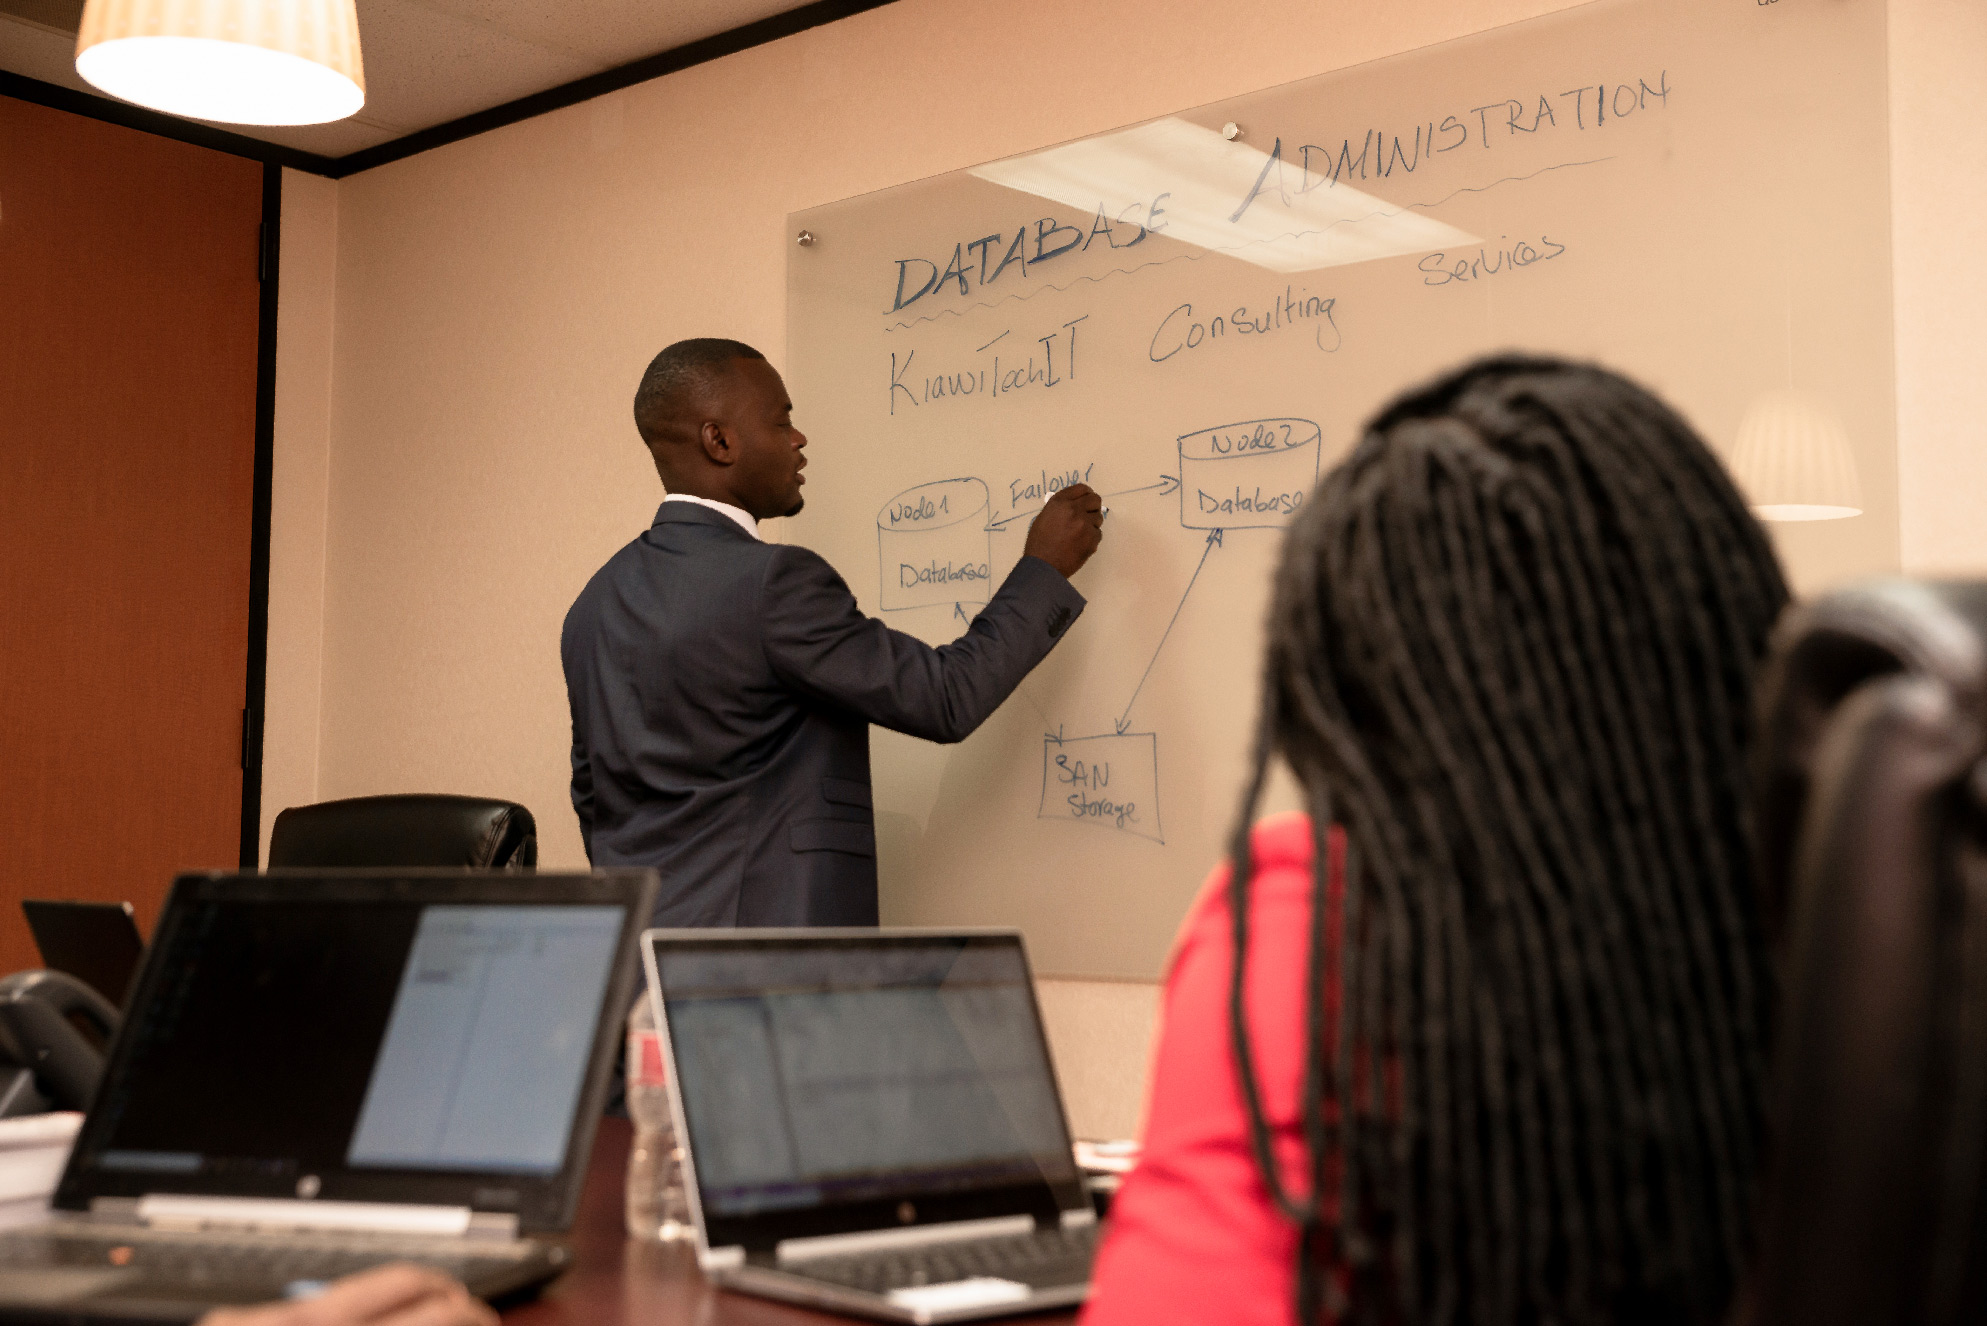 DATABASE ADMINISTRATION
KiawiTechIT Consulting Services
Node1
Database
Failover
Node2
Database
SAN
Storage